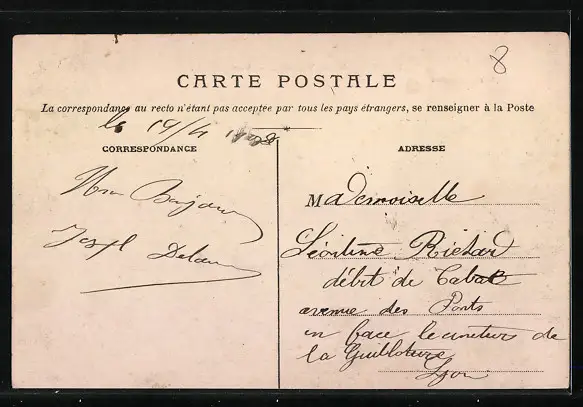 8
CARTE POSTALE
La correspondance au recto n'étant pas acceptée par tous les pays étrangers, se renseigner à la Poste
le 14/4
CORRESPONDANCE
ADRESSE
Mademoiselle
Un Bonjour
Léontine Richard
Joseph
débit de Tabac
avenue des Ponts
en face le de
la Guillotière
Lyon